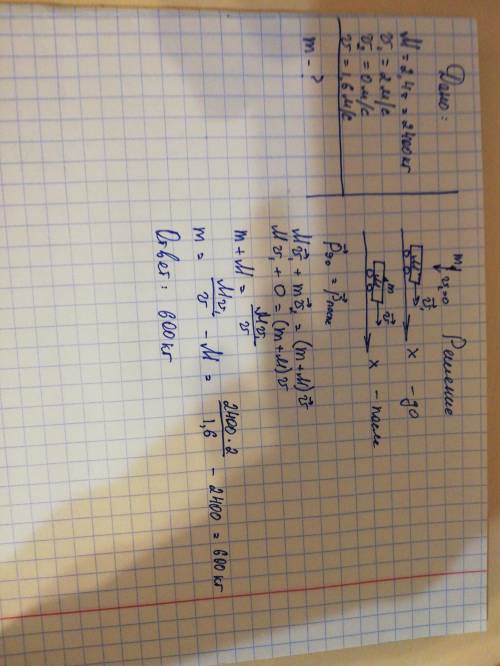 Дано:
M = 2,4т = 2400 кг
v₁ = 2 м/с
v₂ = 0 м/с
v = 1,6 м/с
m - ?
Решение
m v₂=0
M v⃗₁ x - до
m M v⃗ x - после
p⃗до = p⃗после
Mv⃗₁ + mv⃗₂ = (m+M)v⃗
Mv₁ + 0 = (m+M)v
m+M = Mv₁/v
m = Mv₁/v - M = 2400·2/1,6 - 2400 = 600 кг
Ответ: 600 кг